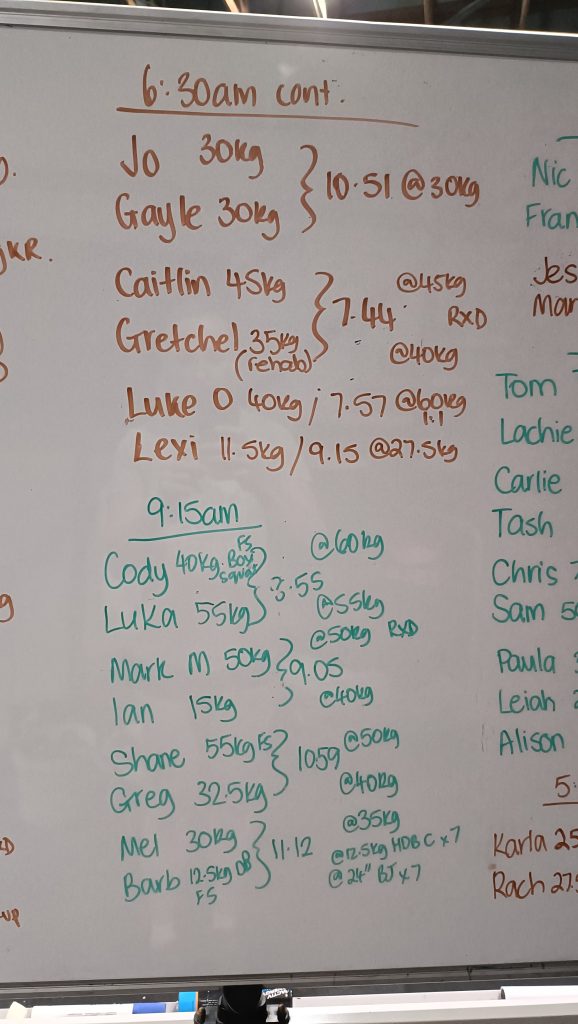 6:30am cont.
Jo 30kg
Gayle 30kg
10.51 @30kg
Caitlin 45kg
Gretchel 35kg
(rehab)
7.44
@45kg
RXD
@40kg
Luke O 40kg / 7.57 @60kg
1:1
Lexi 11.5kg / 9.15 @27.5kg
9:15am
Cody 40kg FS Box Squat
Luka 55kg
@60kg
@55kg
Mark M 50kg
Ian 15kg
9.05
@50kg RXD
@40kg
Shane 55kg FS
Greg 32.5kg
10.59
@50kg
@40kg
Mel 30kg
Barb 12.5kg DB
FS
11.12
@35kg
@12.5kg HDBC x7
@24" BJ x7
KR.
UP
Nic
Fran
Jes
Mar
Tom
Lachie
Carlie
Tash
Chris
Sam
Paula
Leiah
Alison
5:
Karla 25
Rach 27.